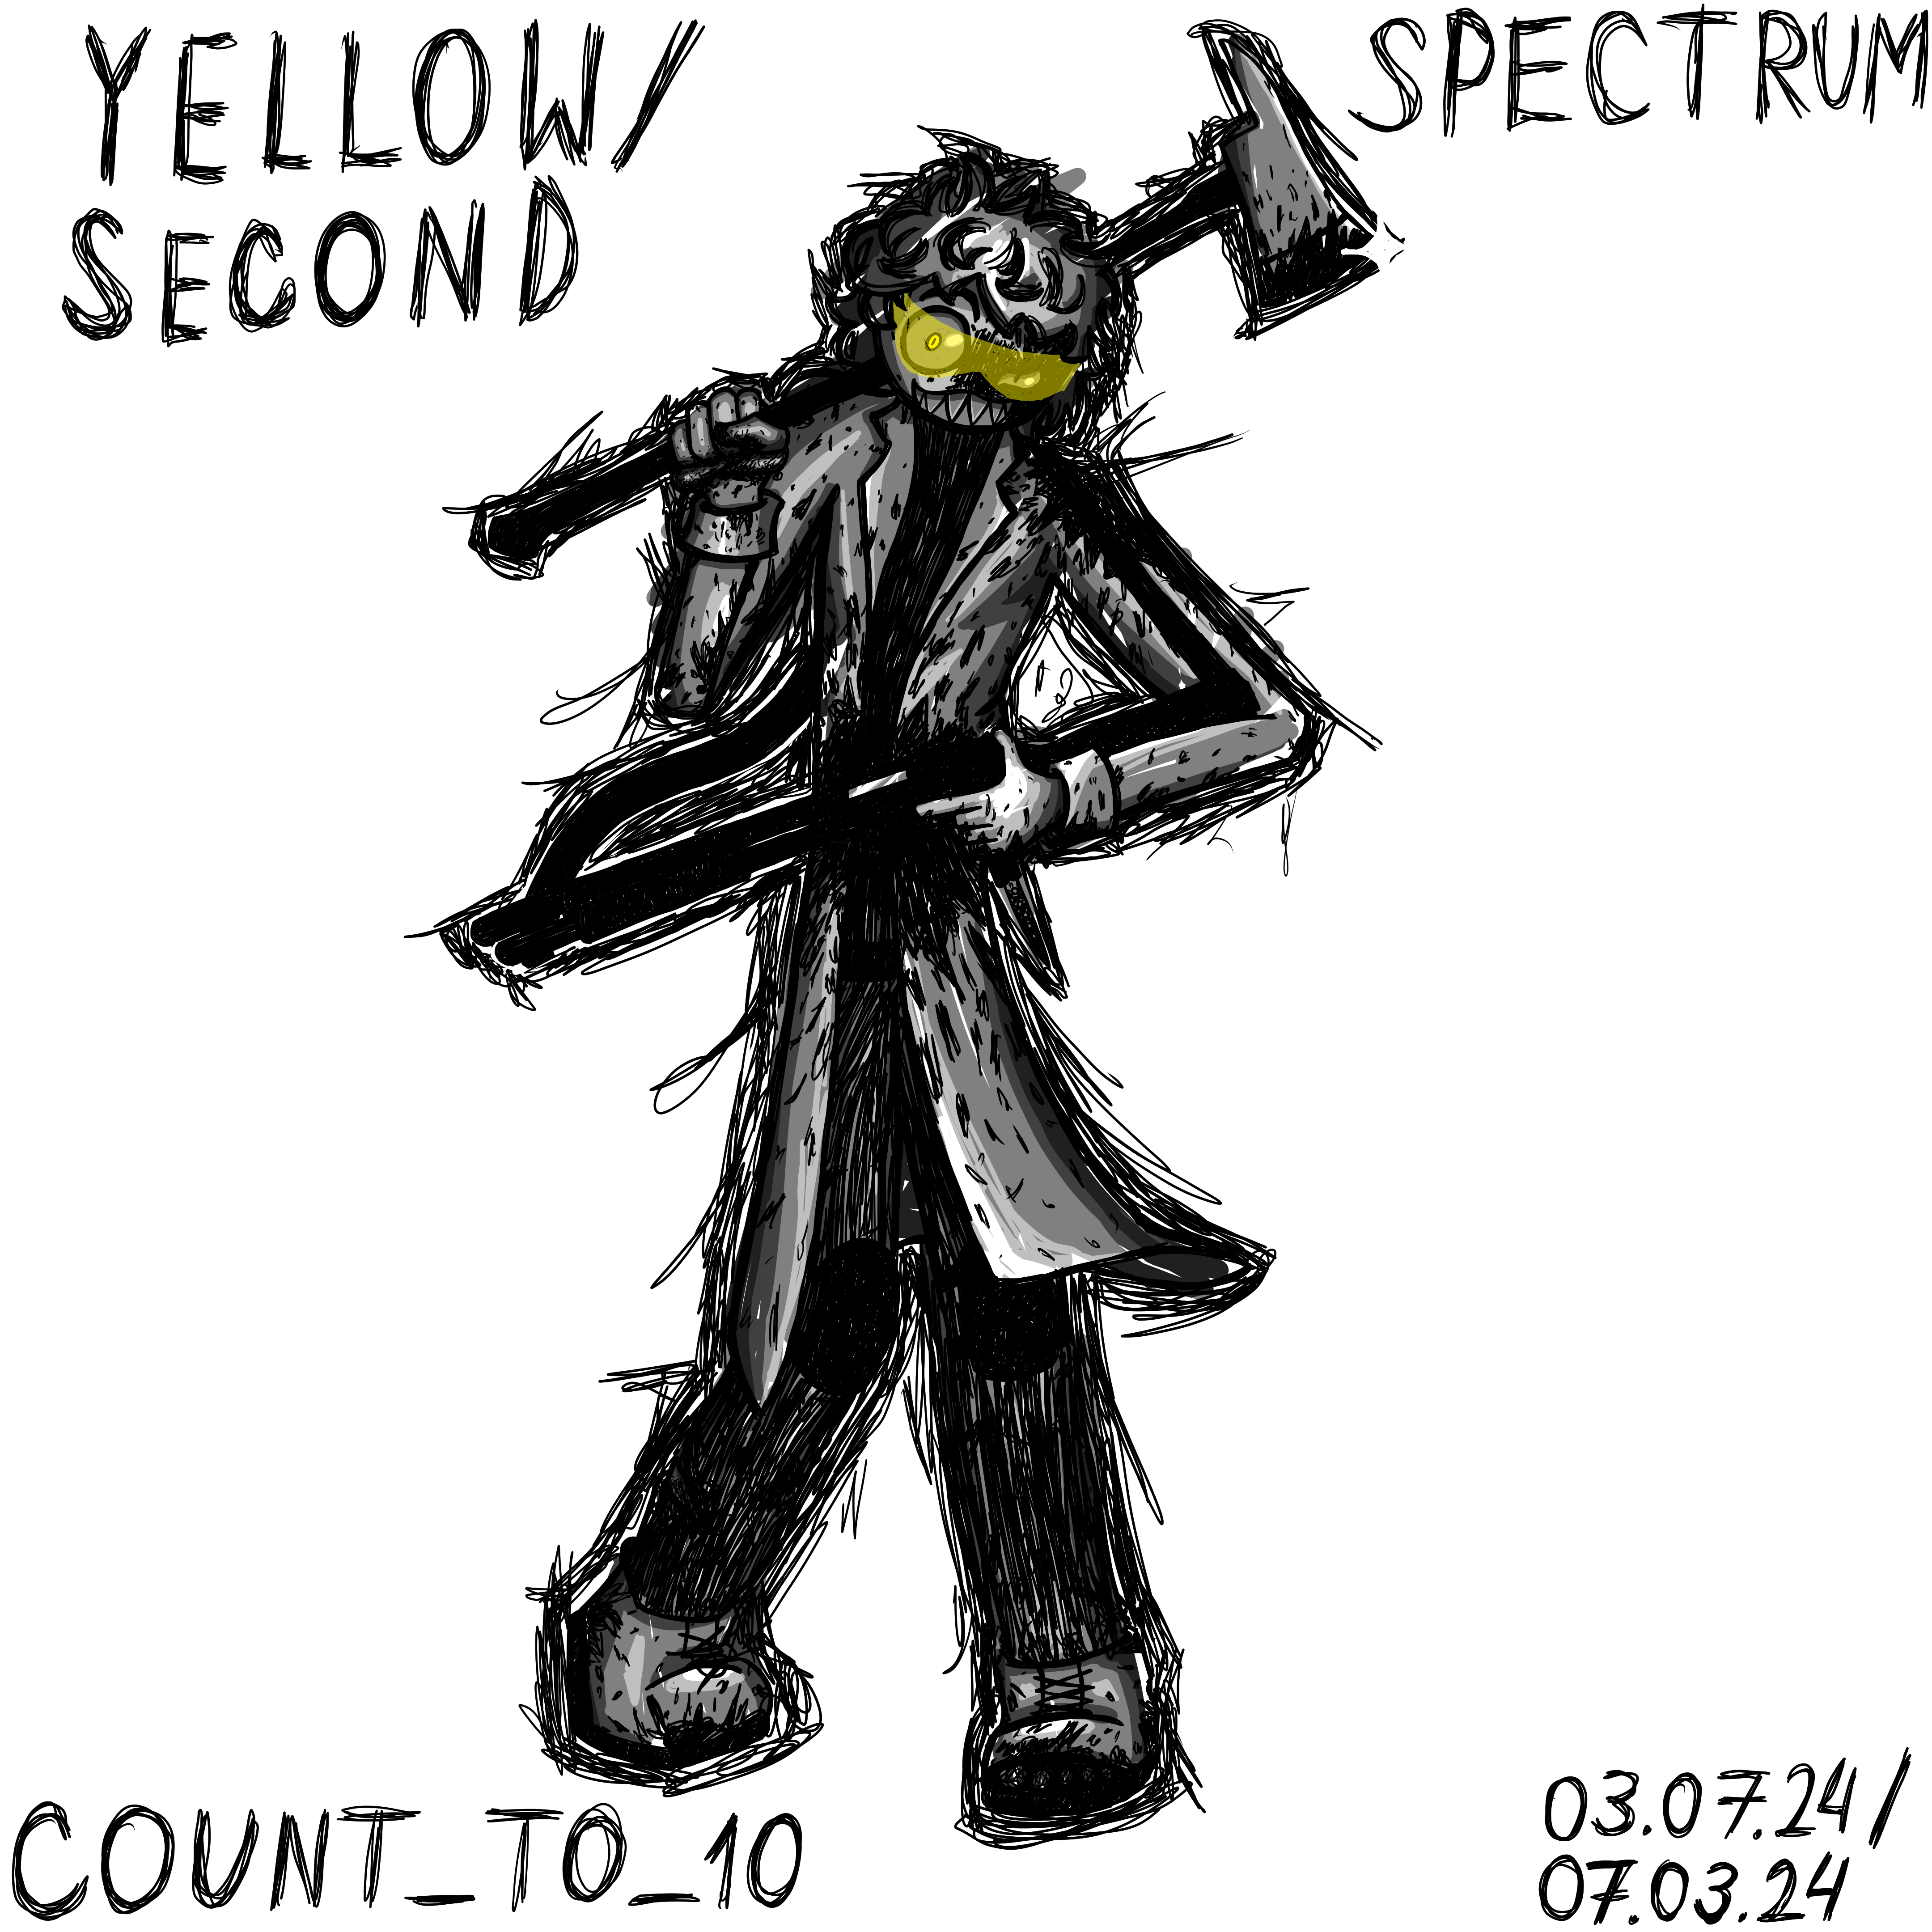 YELLOW/
SECOND
SPECTRUM
COUNT_TO_10
03.07.24/
07.03.24